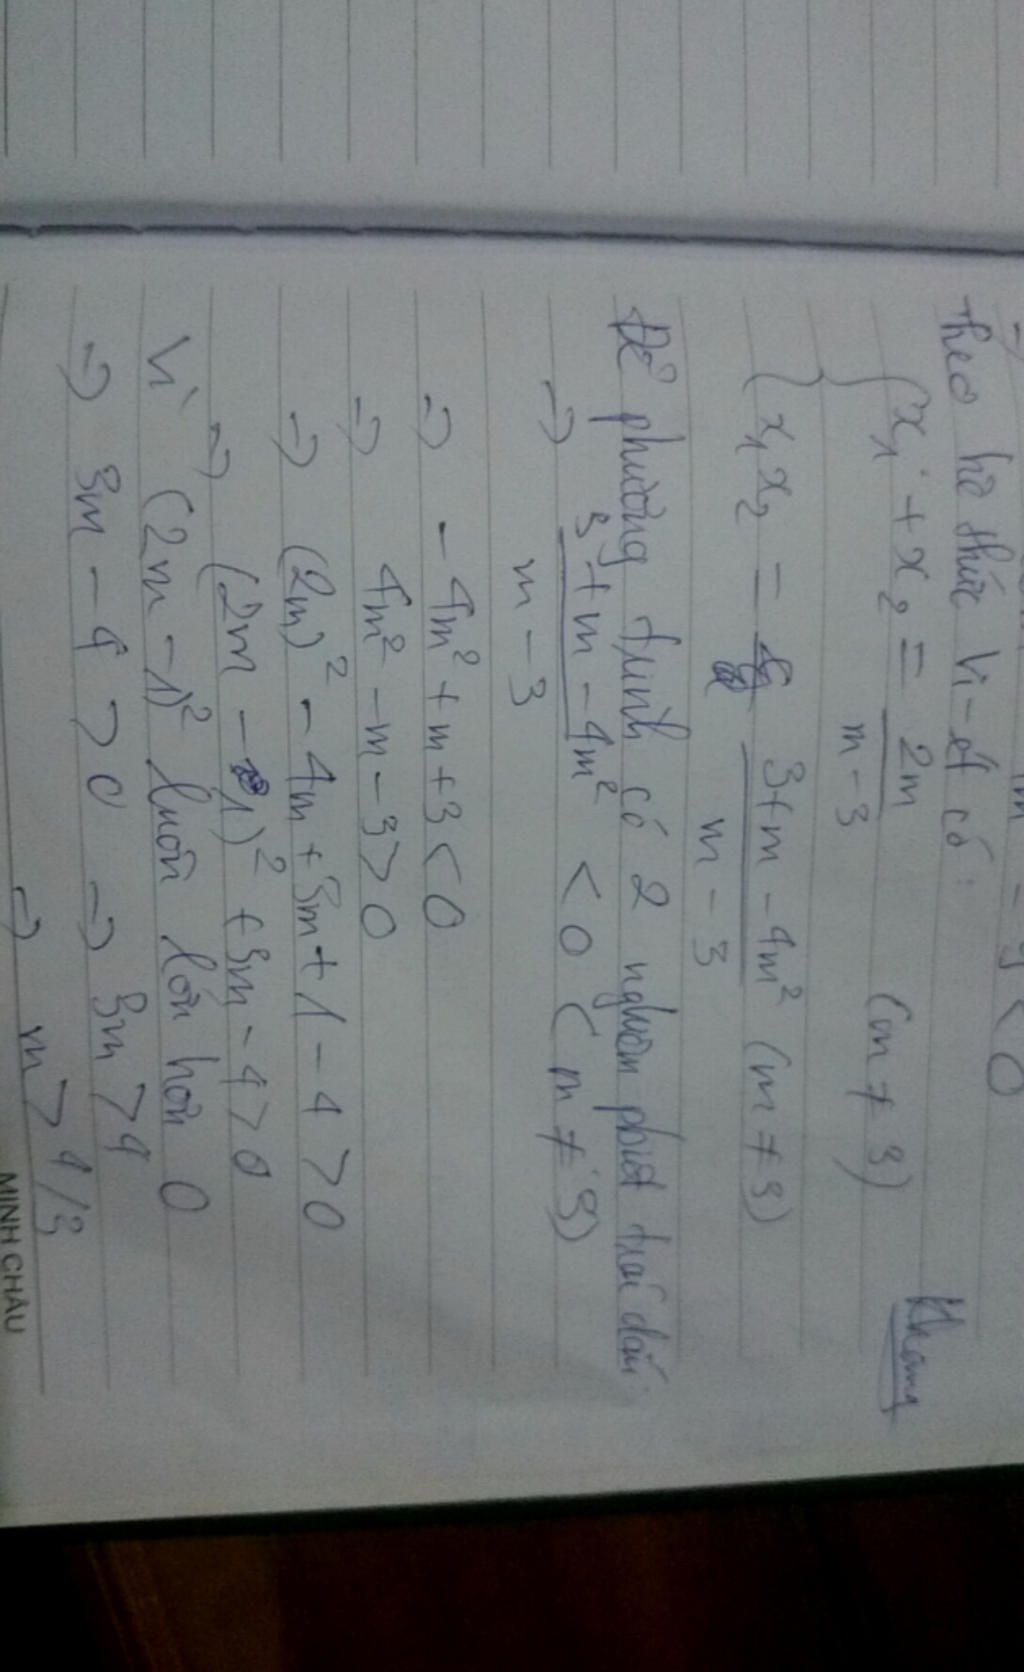 Theo hệ thức Vi-ét có:
x₁ + x₂ = 2m / (m - 3) (m ≠ 3)
Khang
x₁x₂ = (3 + m - 4m²) / (m - 3) (m ≠ 3)
Để phương trình có 2 nghiệm phiệt trái dấu
=> (3 + m - 4m²) / (m - 3) < 0 (m ≠ 3)
=> - 4m² + m + 3 < 0
=> 4m² - m - 3 > 0
=> (2m)² - 4m + 3m + 1 - 4 > 0
=> (2m - 1)² + 3m - 4 > 0
Vì (2m - 1)² luôn lớn hơn 0
=> 3m - 4 > 0 => 3m > 4
=> m > 4/3
MINH CHÂU